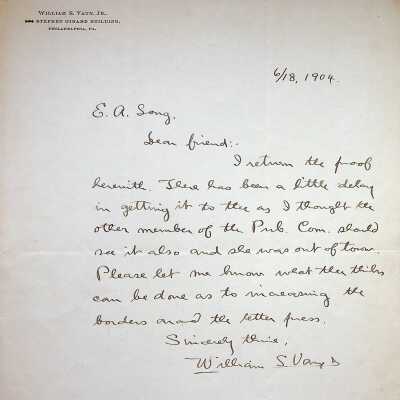 WILLIAM S. VAUX, JR.,
STEPHEN GIRARD BUILDING,
PHILADELPHIA, PA.
6/18, 1904.
E. A. Song.
Dear friend:-
I return the proof
herewith. There has been a little delay
in getting it to thee as I thought the
other member of the Pub. Com. should
see it also and she was out of town.
Please let me know what thee thinks
can be done as to increasing the
borders around the letter press.
Sincerely thine,
William S. Vaux Jr